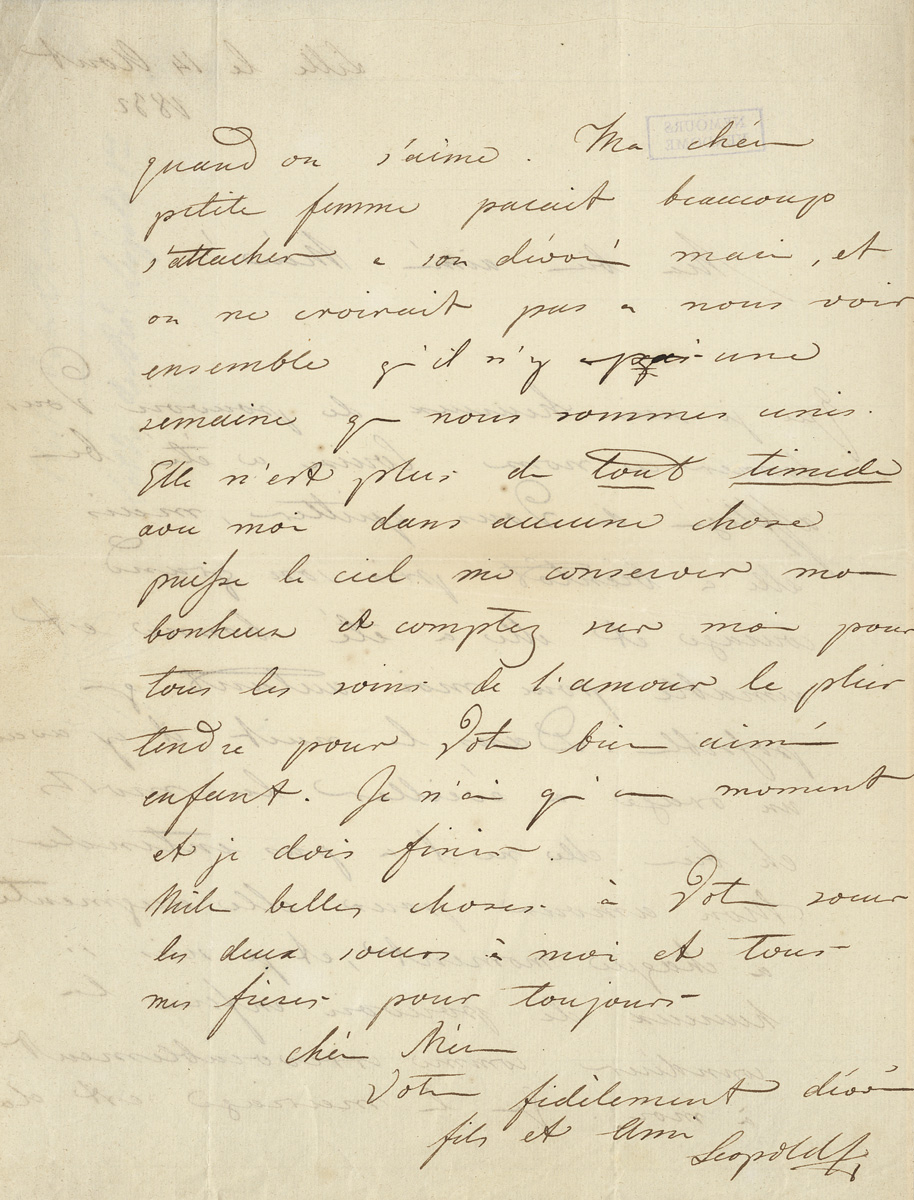 quand on s'aime. Ma chère
petite femme parait beaucoup
s'attacher a son dévoué mari, et
on ne croirait pas a nous voir
ensemble qu'il n'y a pas une
semaine que nous sommes unis.
Elle n'est plus du tout timide
avec moi dans aucune chose
puisse le ciel me conserver mon
bonheur et comptez sur moi pour
tous les soins de l'amour le plus
tendre pour Votre bien aimé
enfant. Je n'ai qu'un moment
et je dois finir.
Mille belles choses à Votre soeur
les deux soeurs à moi et tous
mes frères pour toujours
chère Mère
Votre fidèlement dévoué
fils et Ami
Leopold